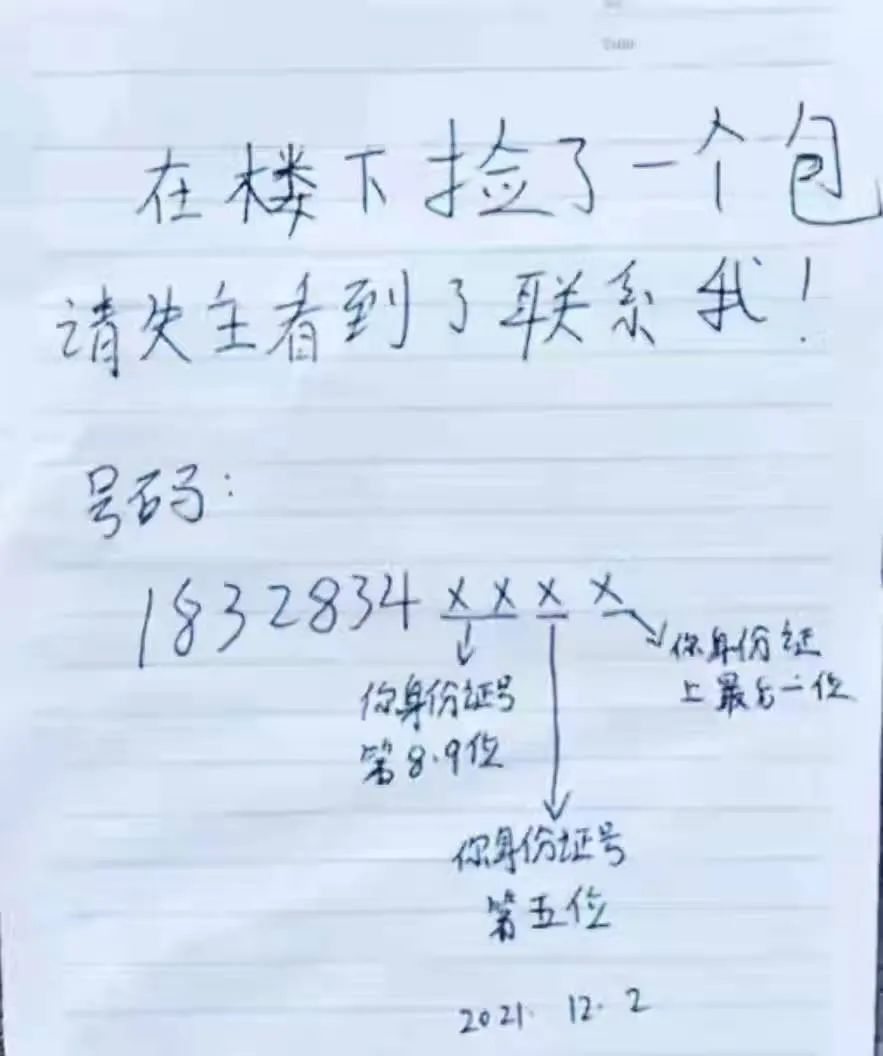 在楼下捡了一个包
请失主看到了联系我！
号码：
1832834××××
你身份证号
第8.9位
你身份证号
第五位
你身份证
上最后一位
2021.12.2